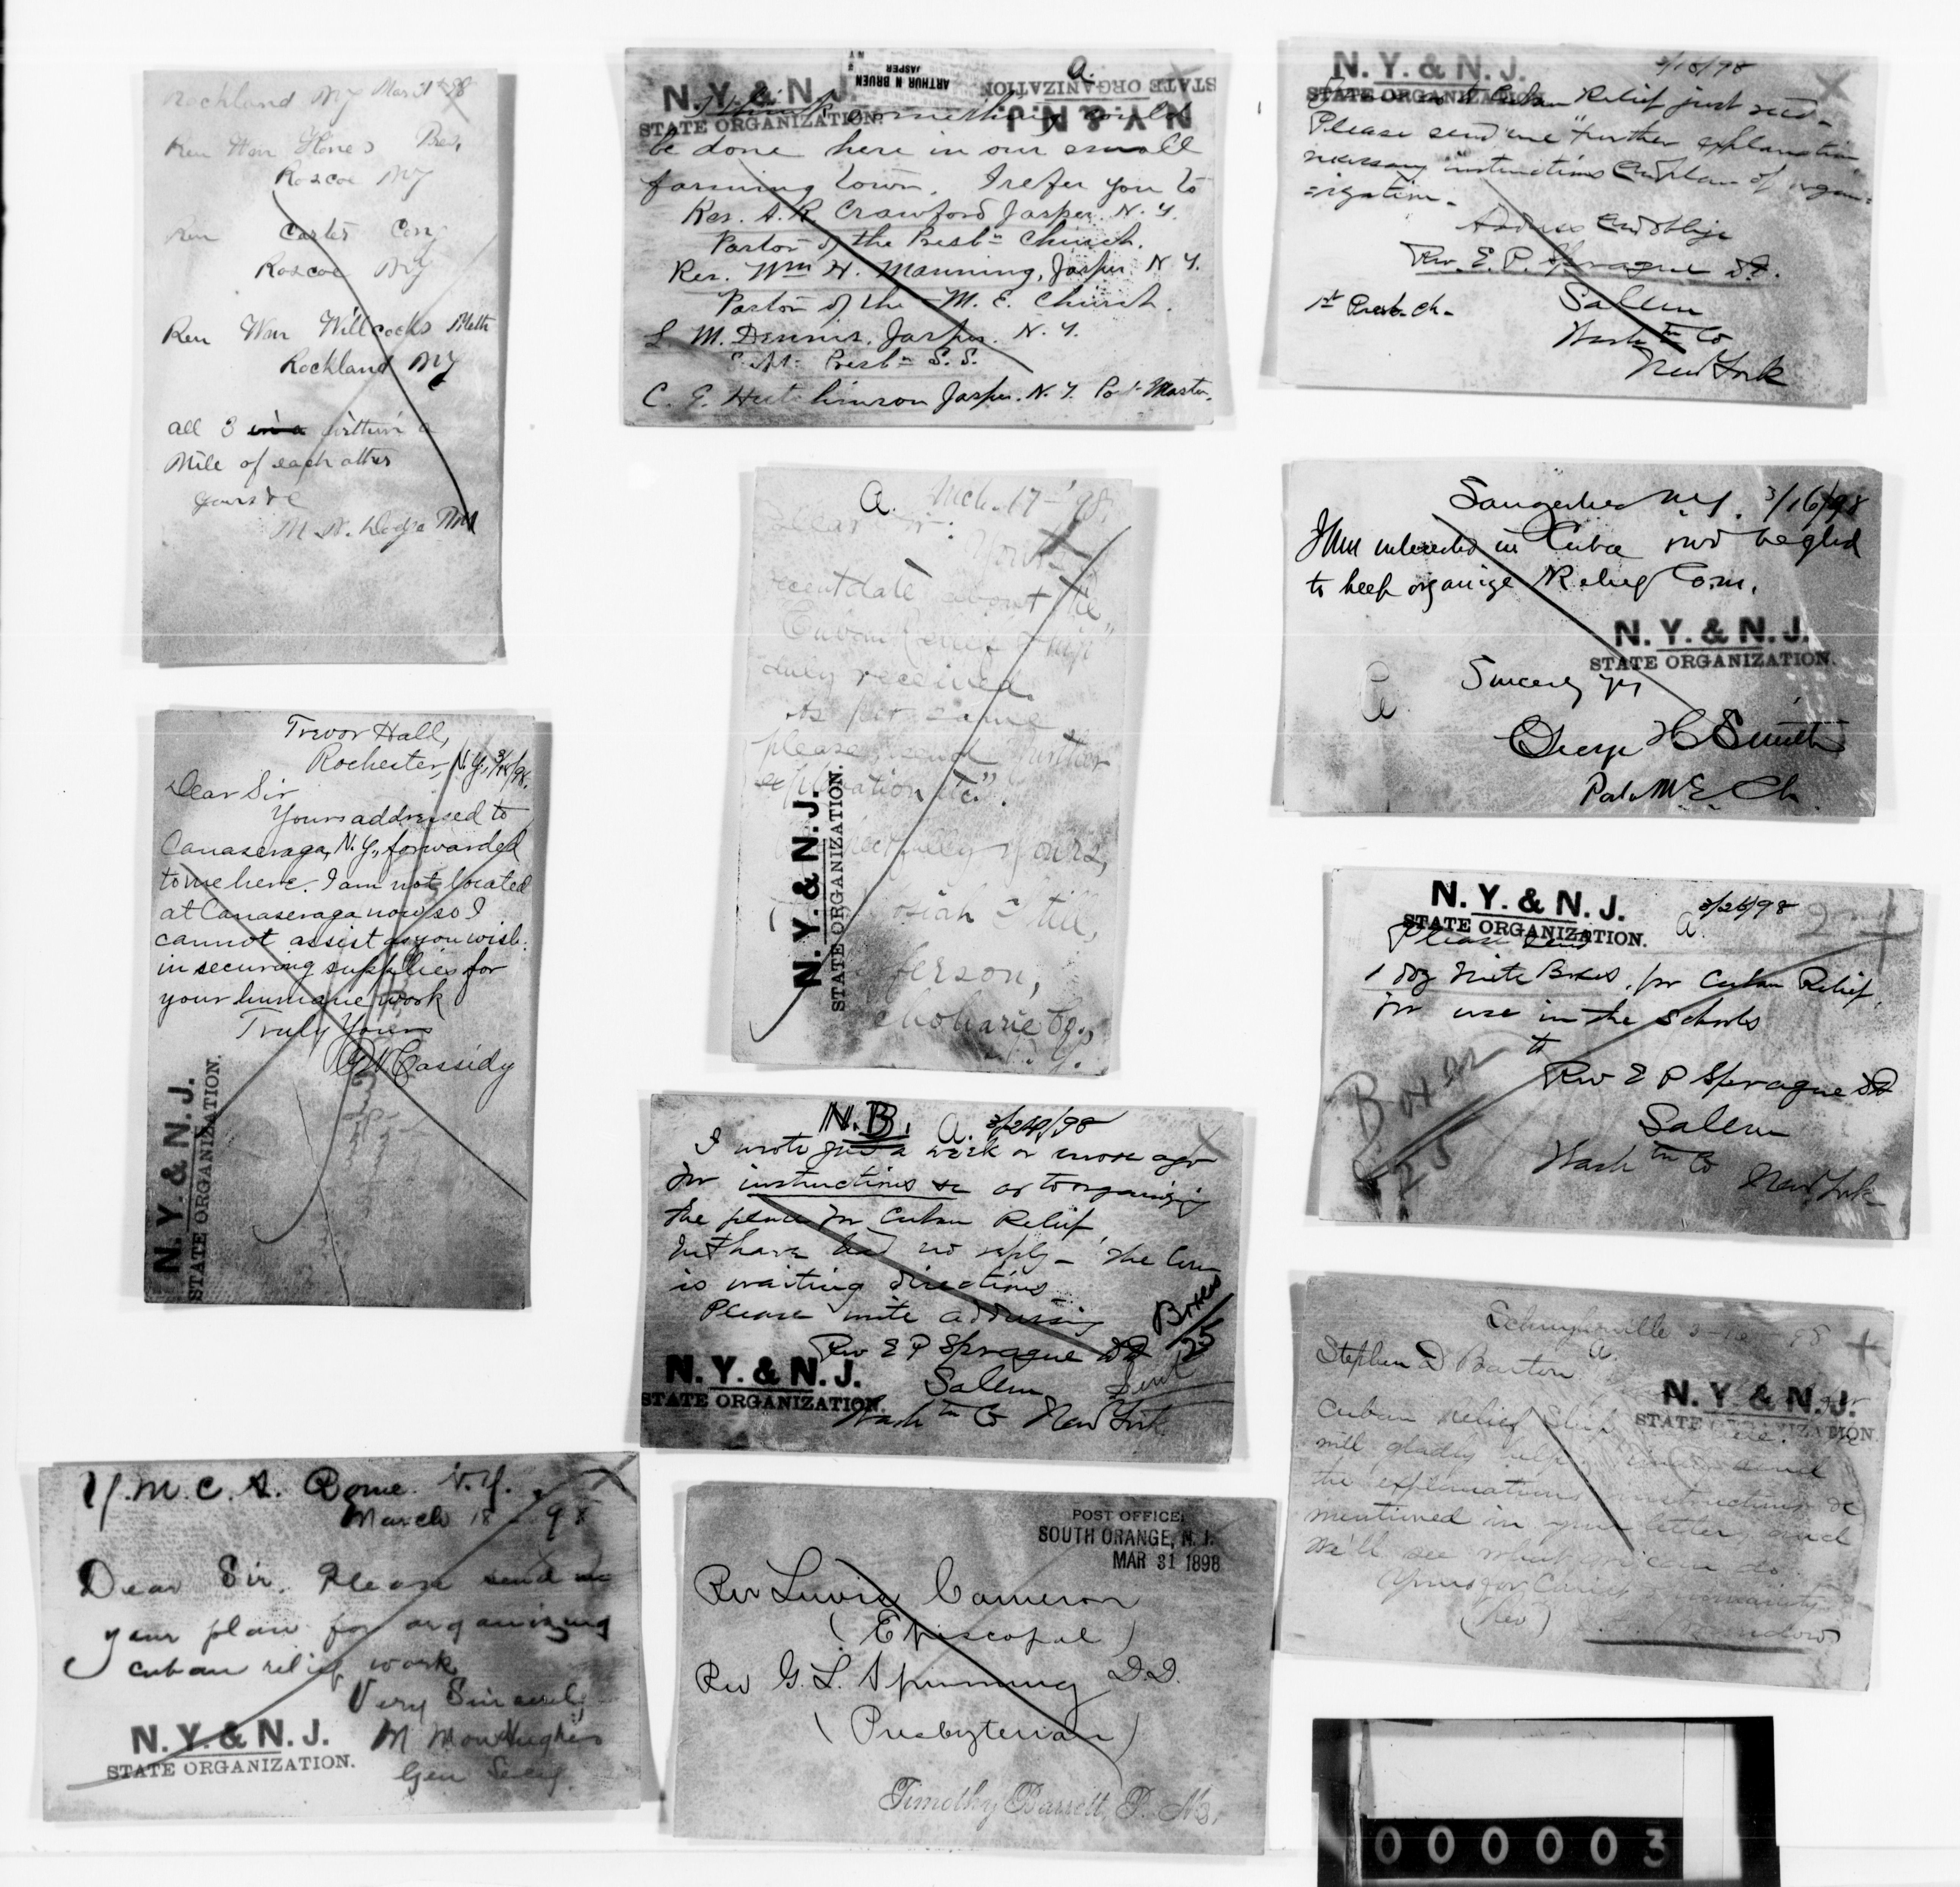 Rockland NY Mar 31st 98
Rev Wm Jones Pres,
Roscoe NY
Rev Carter Cong
Roscoe NY
Rev Wm Willcocks Meth
Rockland NY
all 3 in a within a
Mile of each other
yours &c
M. N. Dodge PM
Trevor Hall,
Rochester, N.Y., 3/18/98.
Dear Sir
Yours addressed to
Canaseraga, N.Y., forwarded
to me here. I am not located
at Canaseraga now so I
cannot assist as you wish
in securing supplies for
your humane work
Truly Yours
Cassidy
N. Y. & N. J.
STATE ORGANIZATION.
Y.M.C.A. Rome N.Y.
March 18 - 98
Dear Sir. Please send me
your plan for organizing
cuban relief work
Very Sincerely
M
Gen Secy.
N. Y. & N. J.
STATE ORGANIZATION.
ARTHUR N BRUEN
JASPER
N Y
a.
N. Y. & N. J.
STATE ORGANIZATION.
N. Y. & N. J.
STATE ORGANIZATION
I think something could
be done here in our small
farming town. I refer you to
Rev. A. R. Crawford Jasper N. Y.
Pastor of the Presbn Church.
Rev. Wm H. Manning, Jasper N Y.
Pastor of the M. E. Church.
L M. Dennis, Jasper. N. Y.
Supt. Presbn S. S.
C. G. Hutchinson Jasper. N. Y. Post Master.
a. Mch. 17 - '98,
Dear Sir:
Yours
recent date about the
"Cuban Relief Ship"
duly received.
As per same
please send "further
explanation etc".
Respectfully Yours,
Josiah Still,
Jefferson,
Schoharie Co.,
N. Y.
N. Y. & N. J.
STATE ORGANIZATION.
N.B. a. 3/24/98
I wrote just a week or more ago
for instructions &c as to organizing
the place for Cuban Relief
but have had no reply - The Com
is waiting directions
Please write addressing
Rev E P Sprague DD
Salem
Washtn Co New York
Boxes
25
Sent
N. Y. & N. J.
STATE ORGANIZATION.
POST OFFICE,
SOUTH ORANGE, N. J.
MAR 31 1898
Rev Lewis Cameron
(Episcopal)
Rev G. L. Spinning D.D.
(Presbyterian)
Timothy Barrett, P. M.,
N. Y. & N. J.
STATE ORGANIZATION.
3/18/98
Cuban Relief just recd -
Please send me "further explanation
necessary instructions and plan of organ-
ization -
Address and oblige
Rev. E. P. Sprague DD.
1st Presb. Ch - Salem
Washtn Co
New York
Saugerties N.Y. 3/16/98
I am interested in Cuba and be glad
to help organize Relief Com.
N. Y. & N. J.
STATE ORGANIZATION.
a Sincerely yrs
George H Smith
Pastor M E Ch.
N. Y. & N. J.
STATE ORGANIZATION.
a. 3/26/98 24
Please send
1 doz Mite Boxes, for Cuban Relief,
for use in the schools
to
Rev E P Sprague DD
Salem
Washtn Co New York
Boxes
25
Schuylerville 3-18-98
Stephen D Barton a.
N. Y & N. J.
STATE ORGANIZATION.
Cuban relief here. We
will gladly help. Kindly send
the explanations instructions &c
mentioned in your letter and
We'll see what we can do.
Yours for Christ & humanity
(Rev)
000003